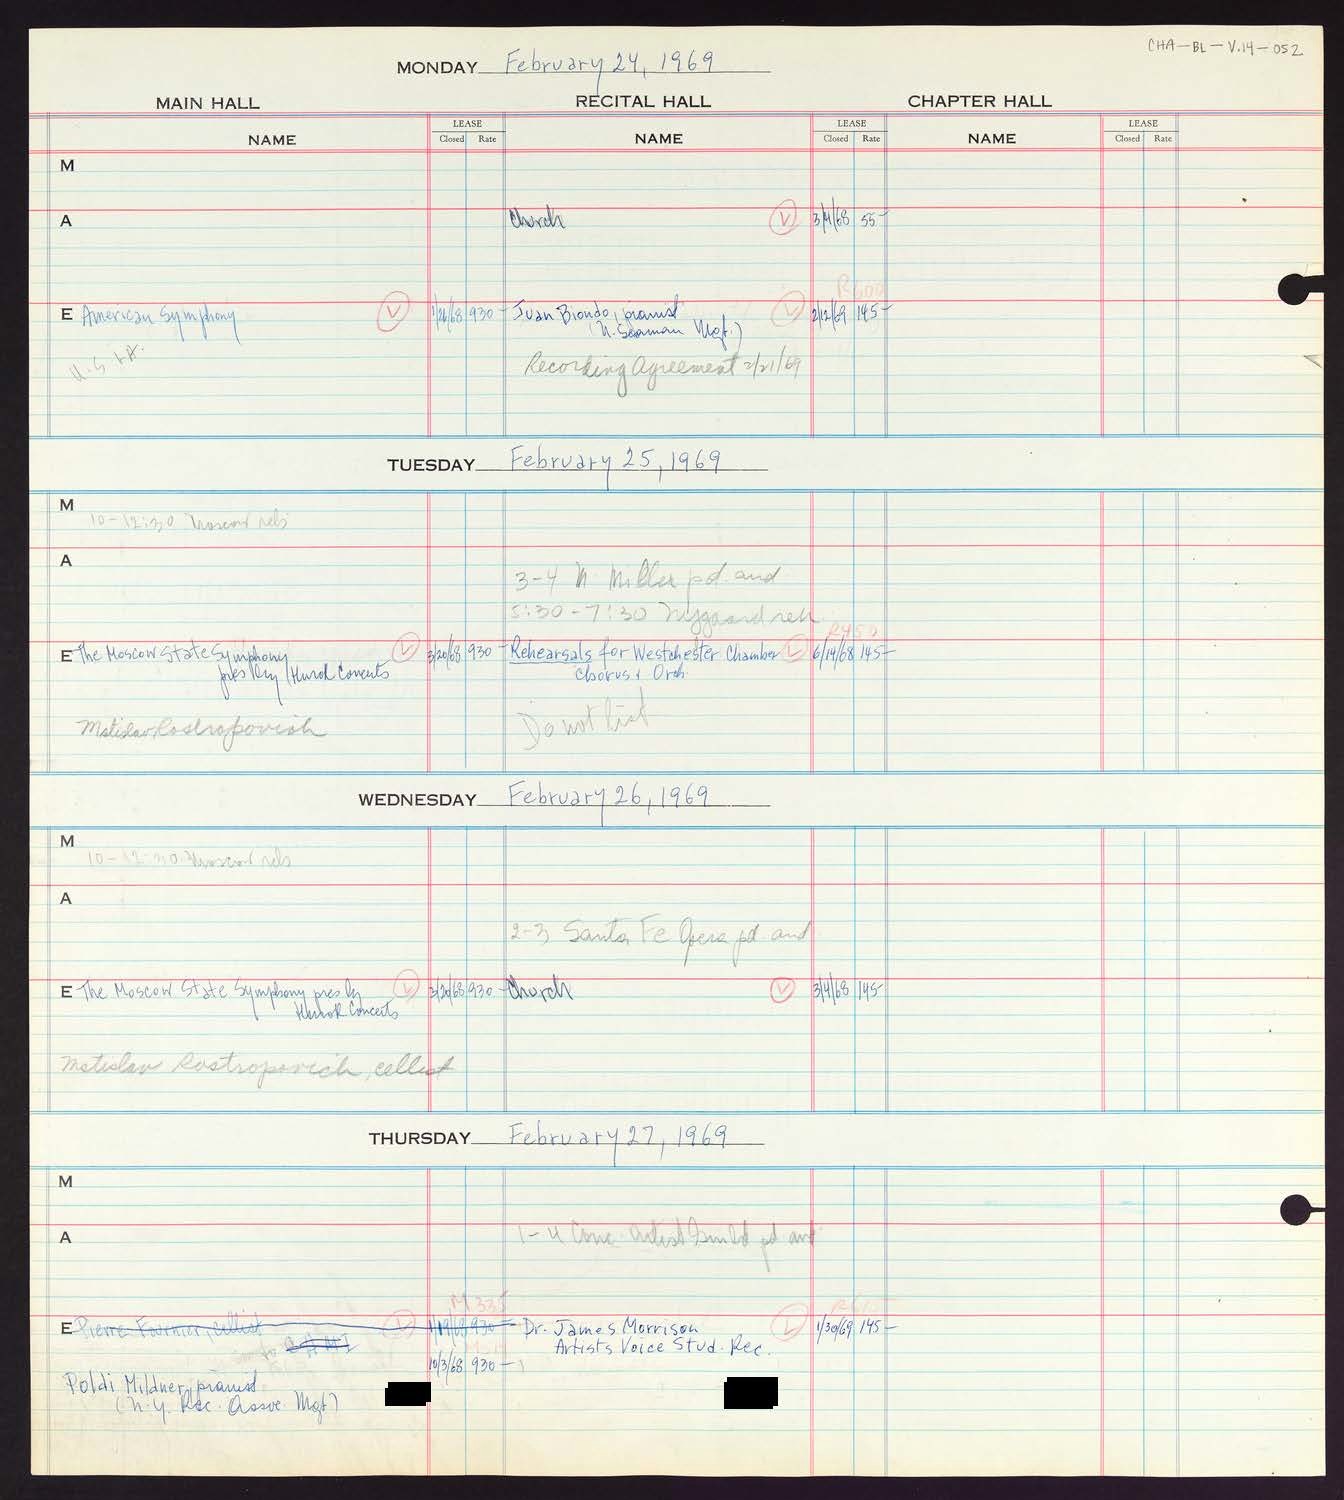 CHA-BL-V.14-052
MONDAY February 24, 1969
MAIN HALL RECITAL HALL CHAPTER HALL
LEASE LEASE LEASE
NAME Closed Rate NAME Closed Rate NAME Closed Rate
M
A Church V 3/4/68 55-
R600
E American Symphony V 1/26/68 930- Juan Biondo, pianist V 2/12/69 145-
(N. Seaman Mgt.)
Recording Agreement 2/21/69
TUESDAY February 25, 1969
M
10-12:30 Moscow reh
A
3-4 M. Miller pd. and
5:30-7:30 Nygaard reh
R450
E The Moscow State Symphony V 3/20/68 930- Rehearsals for Westchester Chamber V 6/14/68 145-
pres by (Hurok Concerts Chorus & Orch.
Mstislav Rostropovich Do not list
WEDNESDAY February 26, 1969
M
10-12:30 Moscow reh
A
2-3 Santa Fe Opera pd. and
E The Moscow State Symphony pres by V 3/20/68 930- Church V 3/4/68 145-
Hurok Concerts
Mstislav Rostropovich, cellist
THURSDAY February 27, 1969
M
A 1-4 Conc. Artist Guild pd and
M 335
E Pierre Fournier, cellist V 1/19/68 930- Dr. James Morrison V 1/30/69 145-
Artists Voice Stud. Rec.
10/3/68 930-
Poldi Mildner, pianist
(N.Y. Rec. Assoc. Mgt)